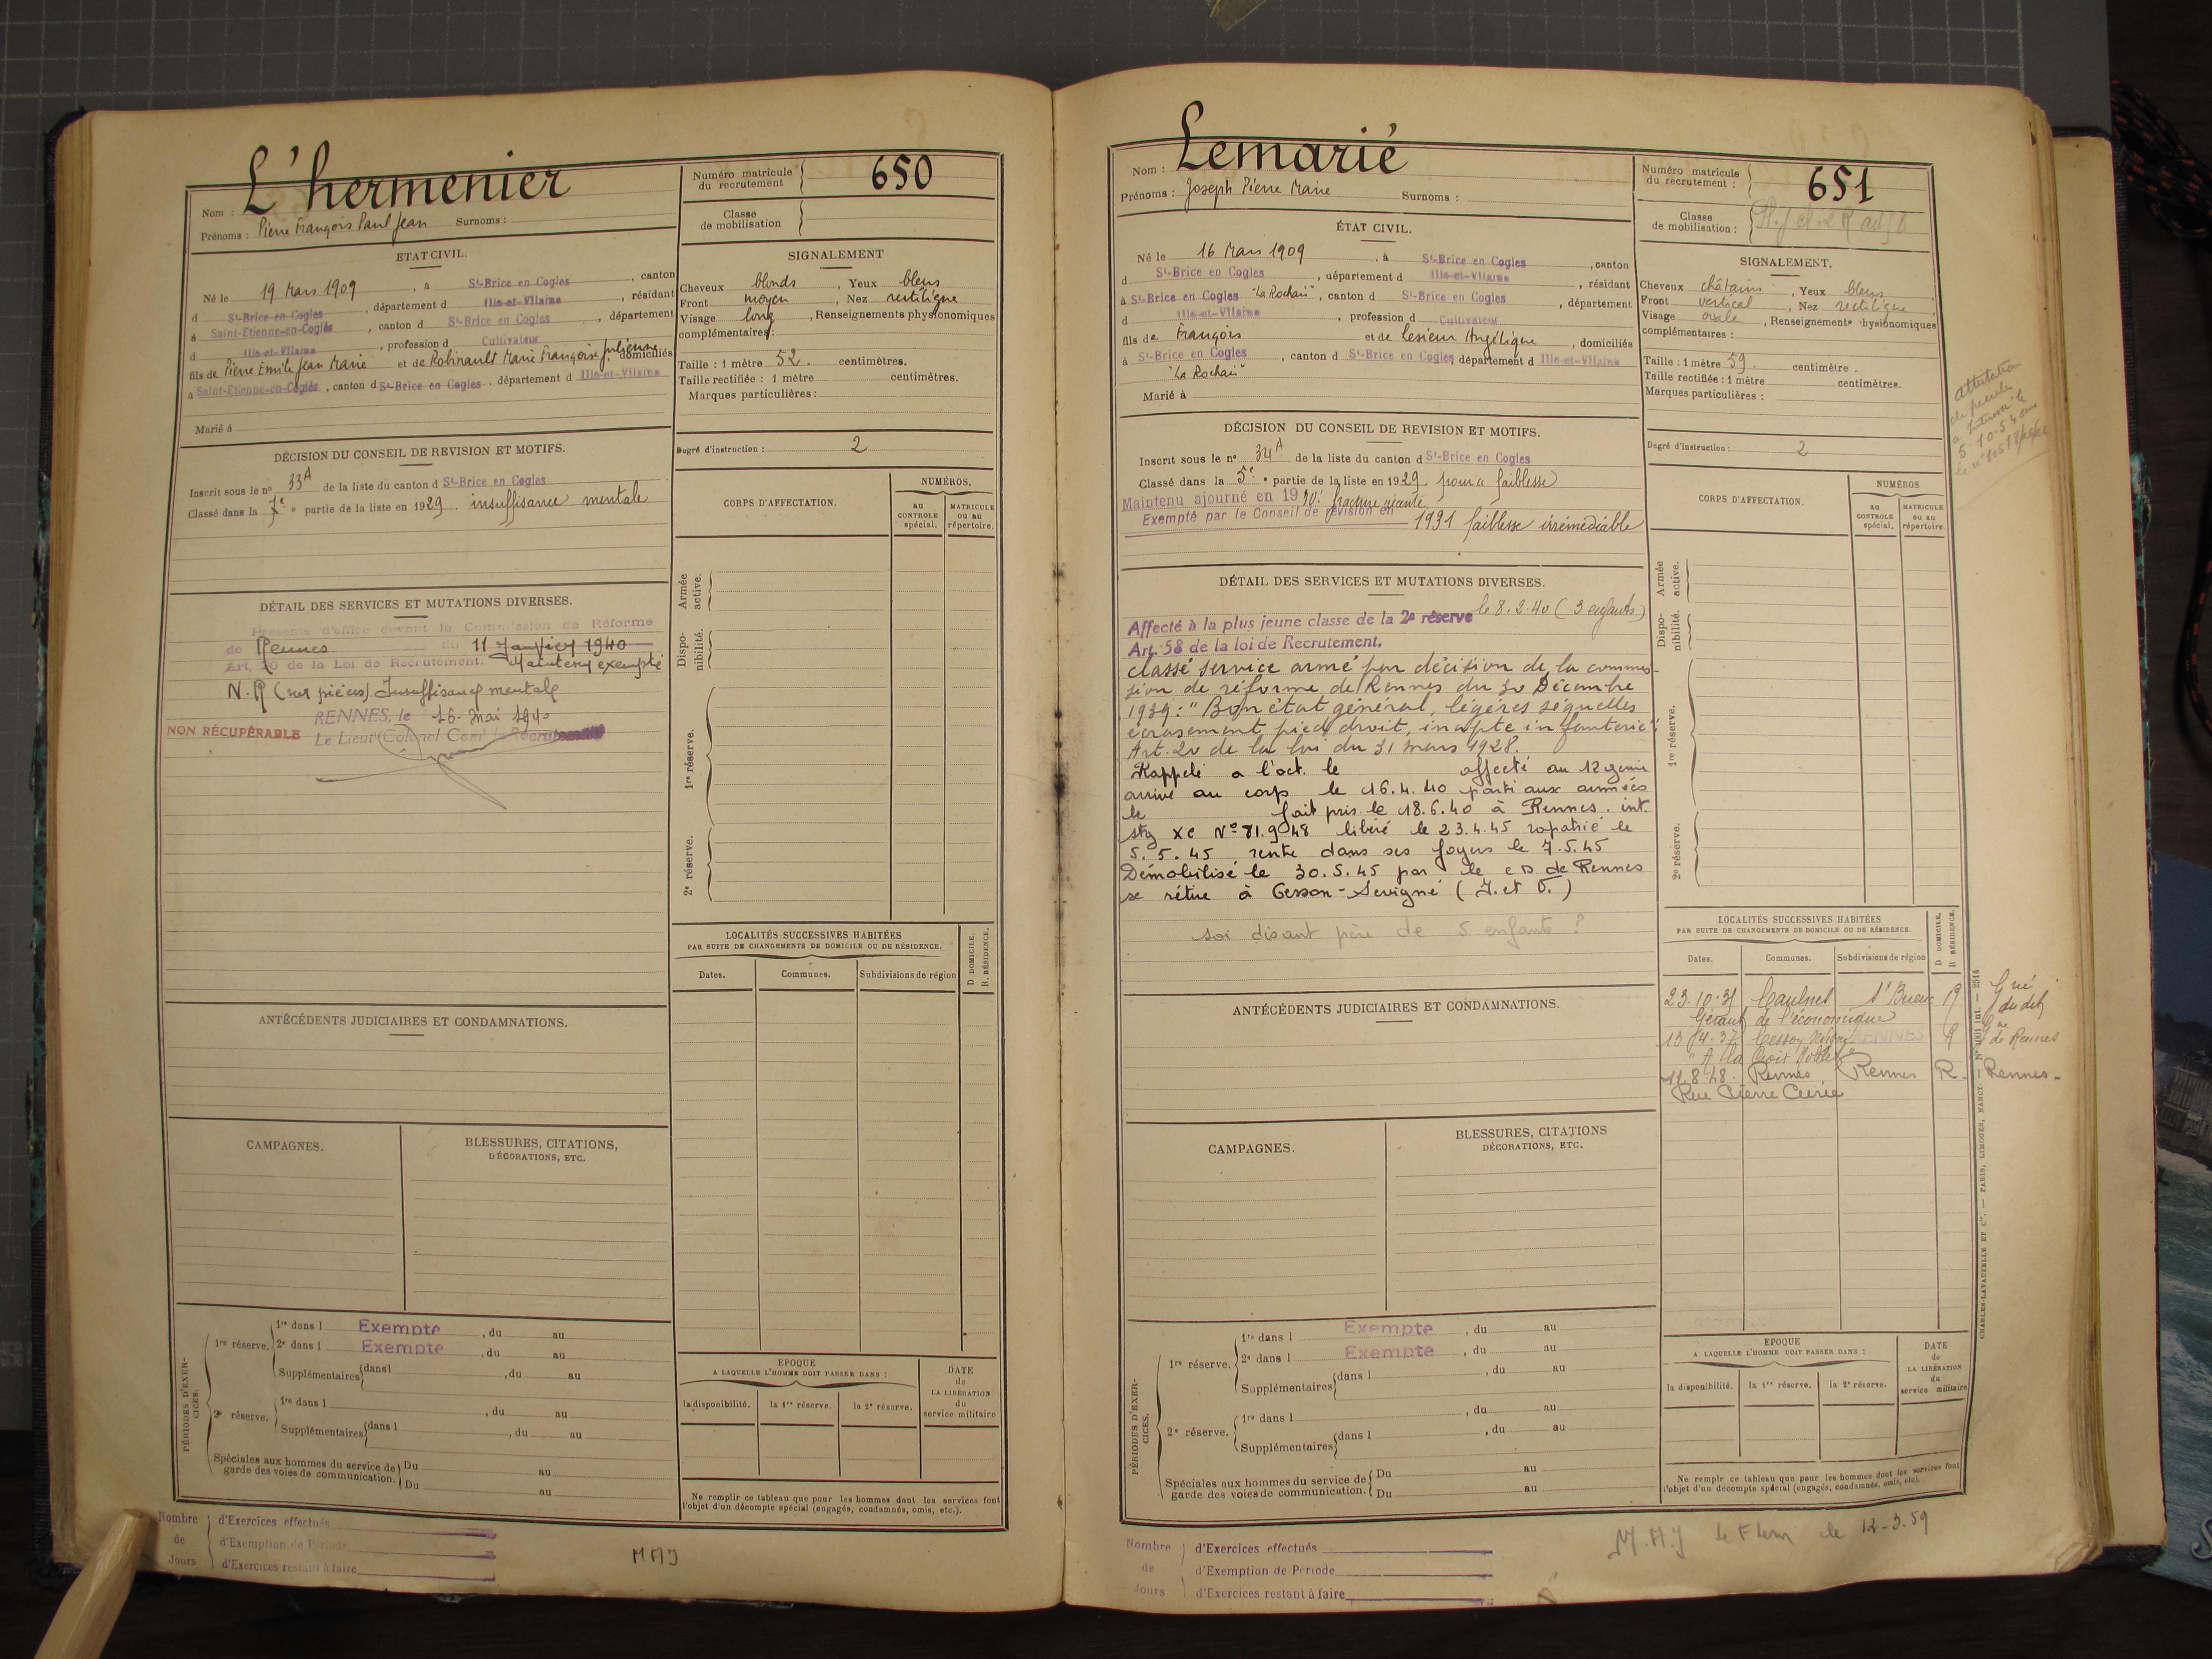 L'hermenier
Nom :
Prénoms : Pierre François Paul Jean Surnoms :
Numéro matricule du recrutement 650
Classe de mobilisation
ETAT CIVIL.
Né le 19 Mars 1909, à St-Brice en Cogles, canton
d St-Brice en Cogles, département d Ille-et-Vilaine, résidant
à Saint-Etienne-en-Coglès, canton d St-Brice en Cogles, département
d Ille-et-Vilaine, profession d Cultivateur
fils de Pierre Emile Jean Marie et de Robinault Marie Françoise Julienne, domiciliés
à Saint-Etienne-en-Coglès, canton d St-Brice en Cogles, département d Ille-et-Vilaine
Marié à
SIGNALEMENT
Cheveux blonds, Yeux bleus
Front moyen, Nez rectiligne
Visage long, Renseignements physionomiques
complémentaires :
Taille : 1 mètre 52. centimètres.
Taille rectifiée : 1 mètre centimètres.
Marques particulières :
Degré d'instruction : 2
DÉCISION DU CONSEIL DE REVISION ET MOTIFS.
Inscrit sous le no 33A de la liste du canton d St-Brice en Cogles
Classé dans la 7e partie de la liste en 1929. insuffisance mentale
DÉTAIL DES SERVICES ET MUTATIONS DIVERSES.
Présenté d'office devant la Commission de Réforme
de Rennes du 11 Janvier 1940
Art. 20 de la Loi de Recrutement. Maintenu exempté
N.R (sur pièces) Insuffisance mentale
RENNES, le 16. Mai 1940
NON RÉCUPÉRABLE Le Lieut Colonel Comt le Recrutement
CORPS D'AFFECTATION.
NUMÉROS.
au CONTROLE spécial.
MATRICULE ou au répertoire.
Armée active.
Dispo-nibilité.
1re réserve.
2e réserve.
LOCALITÉS SUCCESSIVES HABITÉES
PAR SUITE DE CHANGEMENTS DE DOMICILE OU DE RÉSIDENCE.
D DOMICILE.
R. RÉSIDENCE.
Dates. Communes. Subdivisions de région
ANTÉCÉDENTS JUDICIAIRES ET CONDAMNATIONS.
CAMPAGNES.
BLESSURES, CITATIONS,
DÉCORATIONS, ETC.
PÉRIODES D'EXER-CICES.
1re réserve.
1re dans l Exempté, du au
2e dans l Exempté, du au
Supplémentaires dans l, du au
2e réserve.
1re dans l, du au
Supplémentaires dans l, du au
Spéciales aux hommes du service de garde des voies de communication.
Du au
Du au
EPOQUE
A LAQUELLE L'HOMME DOIT PASSER DANS :
la disponibilité. la 1re réserve. la 2e réserve.
DATE de LA LIBÉRATION du service militaire
Ne remplir ce tableau que pour les hommes dont les services font
l'objet d'un décompte spécial (engagés, condamnés, omis, etc.).
Nombre de Jours
d'Exercices effectués
d'Exemption de Période
d'Exercices restant à faire
MAJ
Nom : Lemarié
Prénoms : Joseph Pierre Marie Surnoms :
Numéro matricule du recrutement : 651
Classe de mobilisation :
ÉTAT CIVIL.
Né le 16 Mars 1909, à St-Brice en Cogles, canton
d St-Brice en Cogles, département d Ille-et-Vilaine, résidant
à St-Brice en Cogles, canton d St-Brice en Cogles, département
d Ille-et-Vilaine, profession d Cultivateur
fils de François et de Lesieur Angélique, domiciliés
à St-Brice en Cogles, canton d St-Brice en Cogles, département d Ille-et-Vilaine
Marié à
SIGNALEMENT.
Cheveux châtains, Yeux bleus
Front vertical, Nez rectiligne
Visage ovale, Renseignements physionomiques
complémentaires :
Taille : 1 mètre 59. centimètre.
Taille rectifiée : 1 mètre centimètres.
Marques particulières :
Degré d'instruction : 2
attestation
5-10-54
DÉCISION DU CONSEIL DE REVISION ET MOTIFS.
Inscrit sous le no 34A de la liste du canton d St-Brice en Cogles
Classé dans la 5e partie de la liste en 1929. pour faiblesse
Maintenu ajourné en 1930. fracture récente
Exempté par le Conseil de révision en 1931 faiblesse irrémédiable
DÉTAIL DES SERVICES ET MUTATIONS DIVERSES.
Affecté à la plus jeune classe de la 2e réserve le 8.2.40 (3 enfants)
Art. 58 de la loi de Recrutement.
Classé service armé par décision de la commis-
sion de réforme de Rennes du 30 Décembre
1939: "Bon état général, légères séquelles
écrasement pied droit, inapte infanterie".
Art. 20 de la loi du 31 mars 1928.
Rappelé a l'oct. le affecté au 12 génie
arrivé au corps le 16.4.40 parti aux armées
le fait pris. le 18.6.40 à Rennes. int.
Stg XC No 81.948 libéré le 23.4.45 rapatrié le
5.5.45 rentre dans ses foyers le 7.5.45
Démobilisé le 30.5.45 par le CD de Rennes
se retire à Cesson-Sevigné (I. et V.)
soi disant père de 5 enfants ?
CORPS D'AFFECTATION.
NUMÉROS
au CONTROLE spécial.
MATRICULE ou au répertoire.
Armée active.
Dispo-nibilité.
1re réserve.
2e réserve.
LOCALITÉS SUCCESSIVES HABITÉES
PAR SUITE DE CHANGEMENTS DE DOMICILE OU DE RÉSIDENCE.
D DOMICILE.
R RÉSIDENCE.
Dates. Communes. Subdivisions de région
23.10.31 Caulnes St Brieuc R
Gérant de l'économique
13.4.37 Cesson Sévigné RENNES R de Rennes
11.8.48 Rennes Rennes R. Rennes-
Rue Pierre Curie
ANTÉCÉDENTS JUDICIAIRES ET CONDAMNATIONS.
CAMPAGNES.
BLESSURES, CITATIONS
DÉCORATIONS, ETC.
PÉRIODES D'EXER-CICES.
1re réserve.
1re dans l Exempté, du au
2e dans l Exempté, du au
Supplémentaires dans l, du au
2e réserve.
1re dans l, du au
Supplémentaires dans l, du au
Spéciales aux hommes du service de garde des voies de communication.
Du au
Du au
EPOQUE
A LAQUELLE L'HOMME DOIT PASSER DANS :
la disponibilité. la 1re réserve. la 2e réserve.
DATE de LA LIBÉRATION du service militaire
Ne remplr ce tableau que pour les hommes dont les services font
l'objet d'un décompte spécial (engagés, condamnés, omis, etc.).
CHARLES-LAVAUZELLE ET Cie. — PARIS, LIMOGES, NANCY.
Nombre de Jours
d'Exercices effectués
d'Exemption de Période
d'Exercices restant à faire
M.A.J le 12-3-59